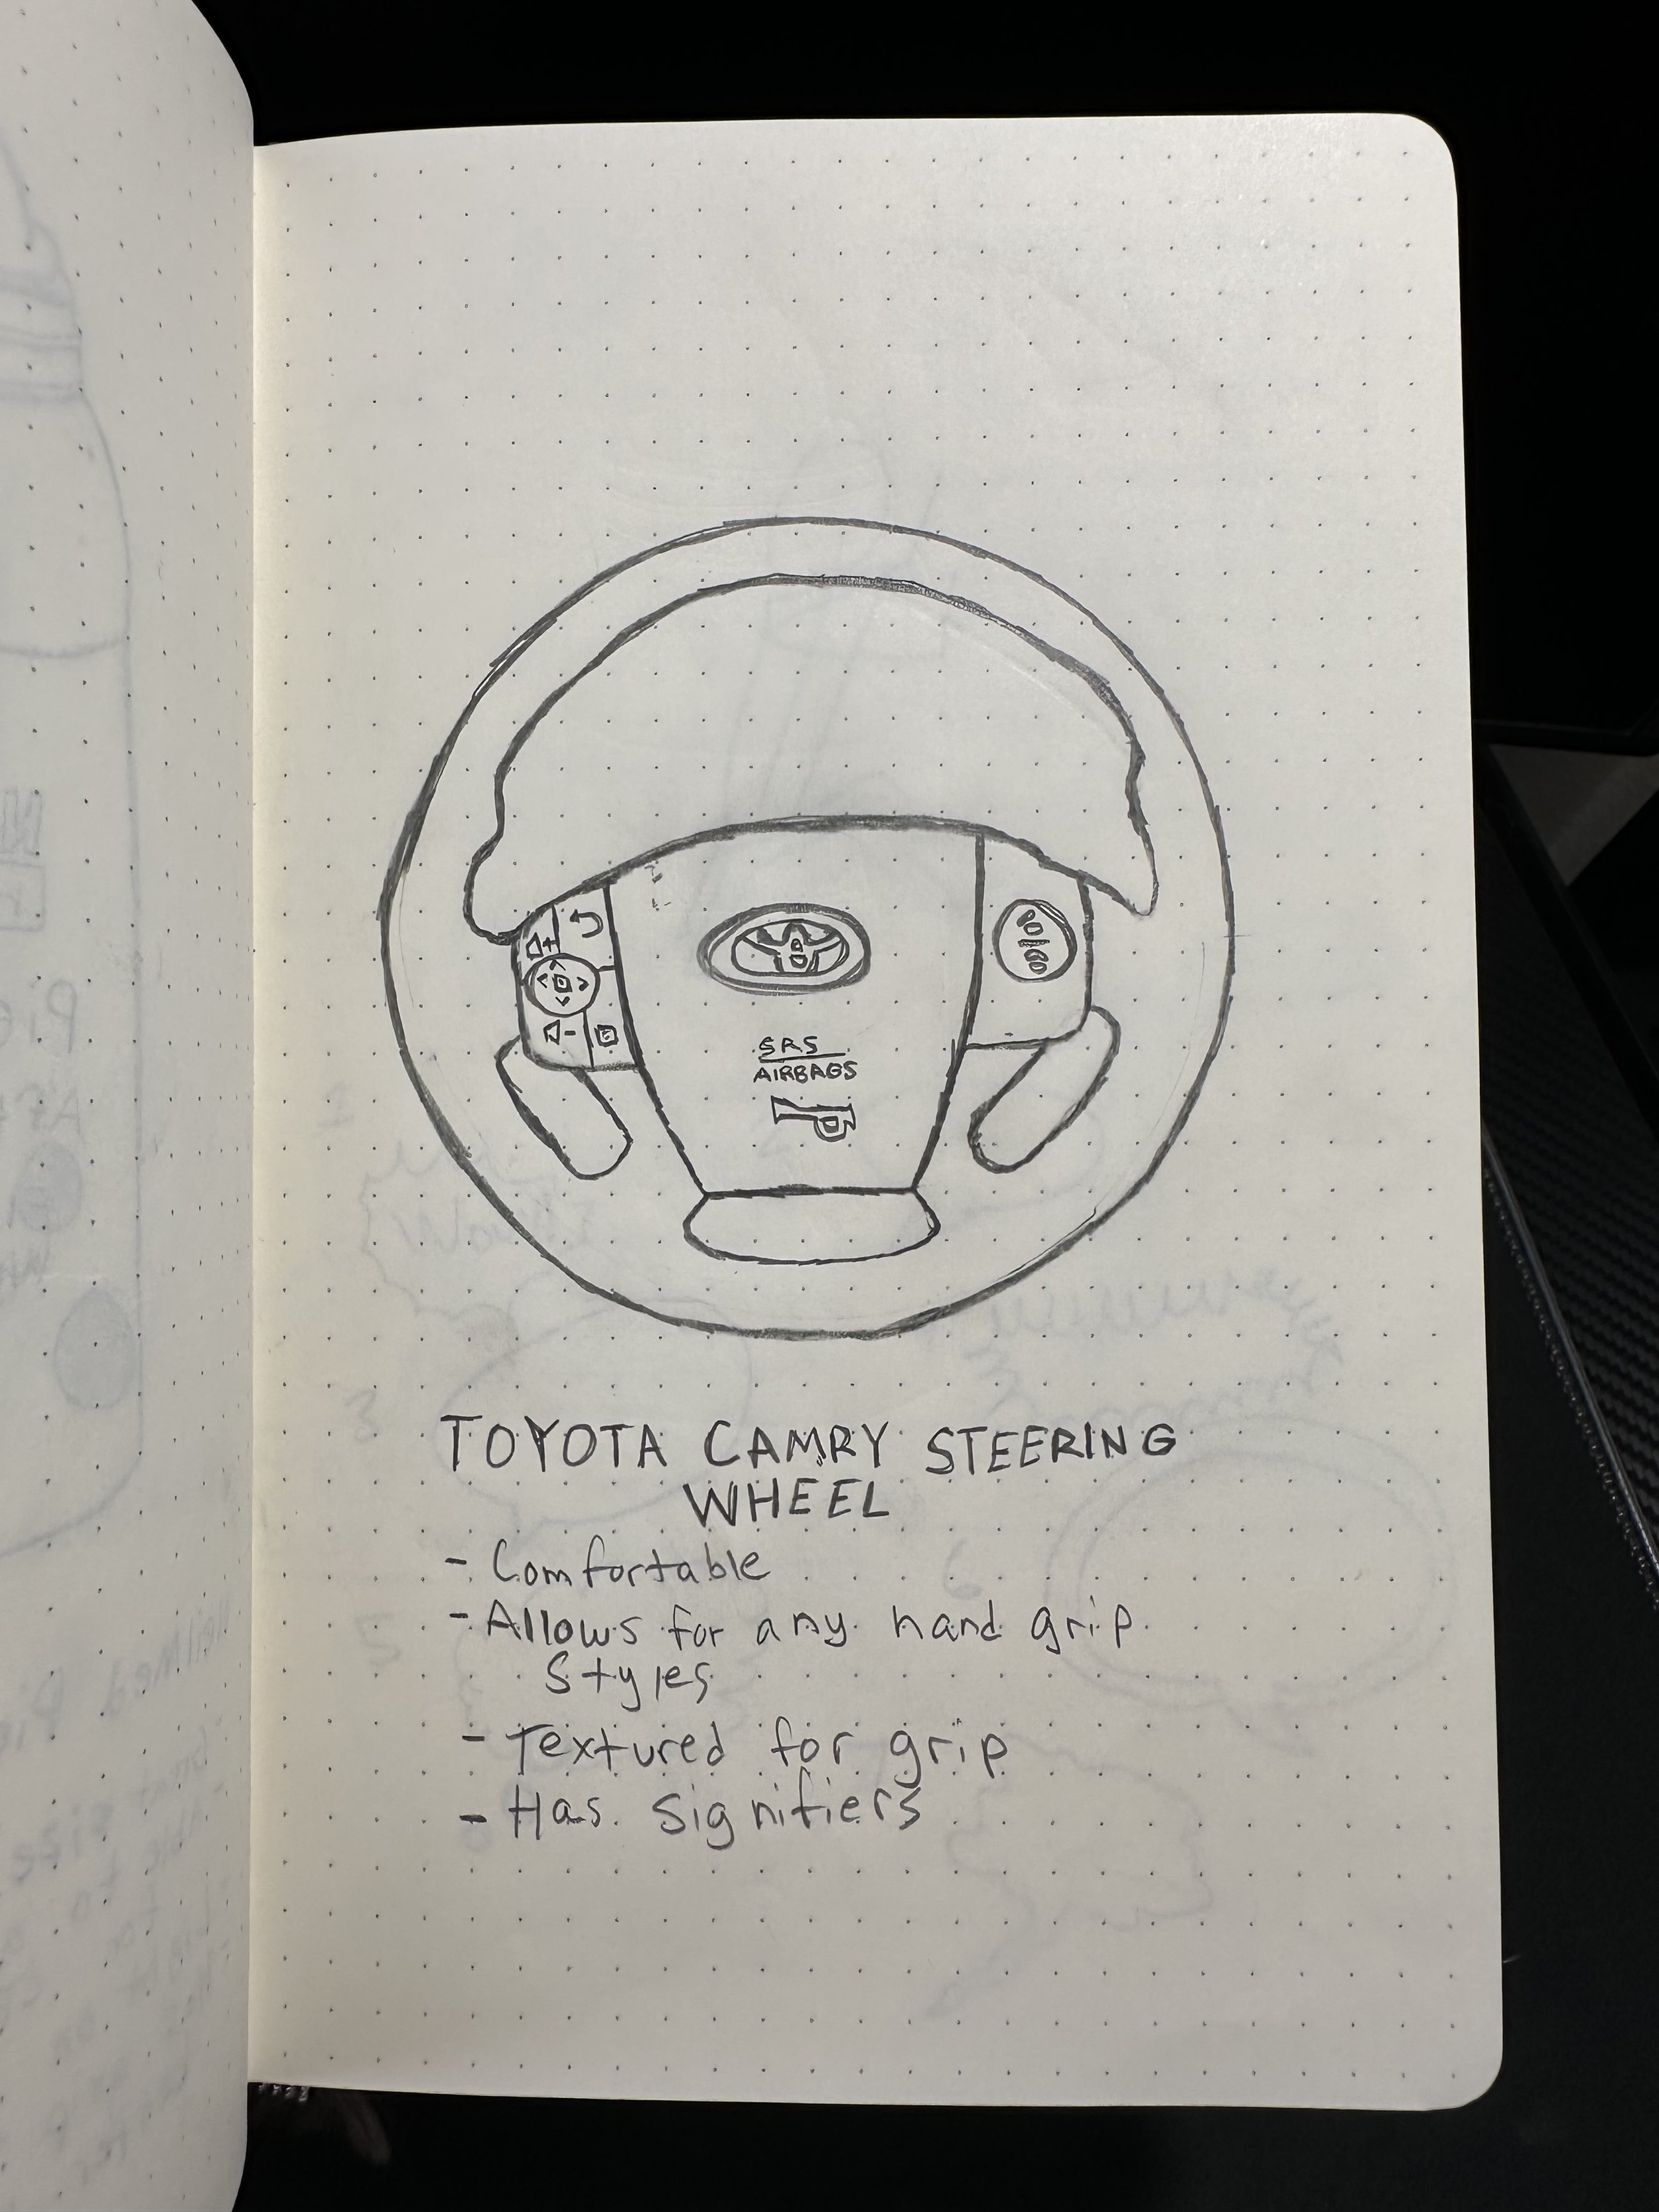 SRS
AIRBAGS
TOYOTA CAMRY STEERING
WHEEL
- Comfortable
- Allows for any hand grip
Styles
- Textured for grip
- Has signifiers